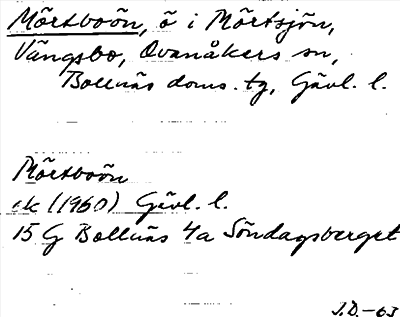 Mörtboön, ö i Mörtsjön,
Vängsbo, Ovanåkers sn,
Bollnäs doms. tg, Gävl. l.
Mörtboön
ek (1960) Gävl. l.
15 G Bollnäs 4a Söndagsberget
J.D.-63